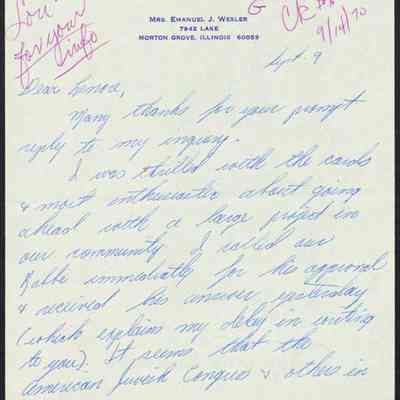 Lou
for your
info
G
Ck
9/14/70
MRS. EMANUEL J. WEXLER
7942 LAKE
MORTON GROVE, ILLINOIS 60053
Sept. 9
Dear Lenore,
Many thanks for your prompt
reply to my inquiry.
I was thrilled with the cards
& most enthusiastic about going
ahead with a large project in
our community. I called our
Rabbi immediately for his approval
& received his answer yesterday
(which explains my delay in writing
to you). It seems that the
American Jewish Congress & others in